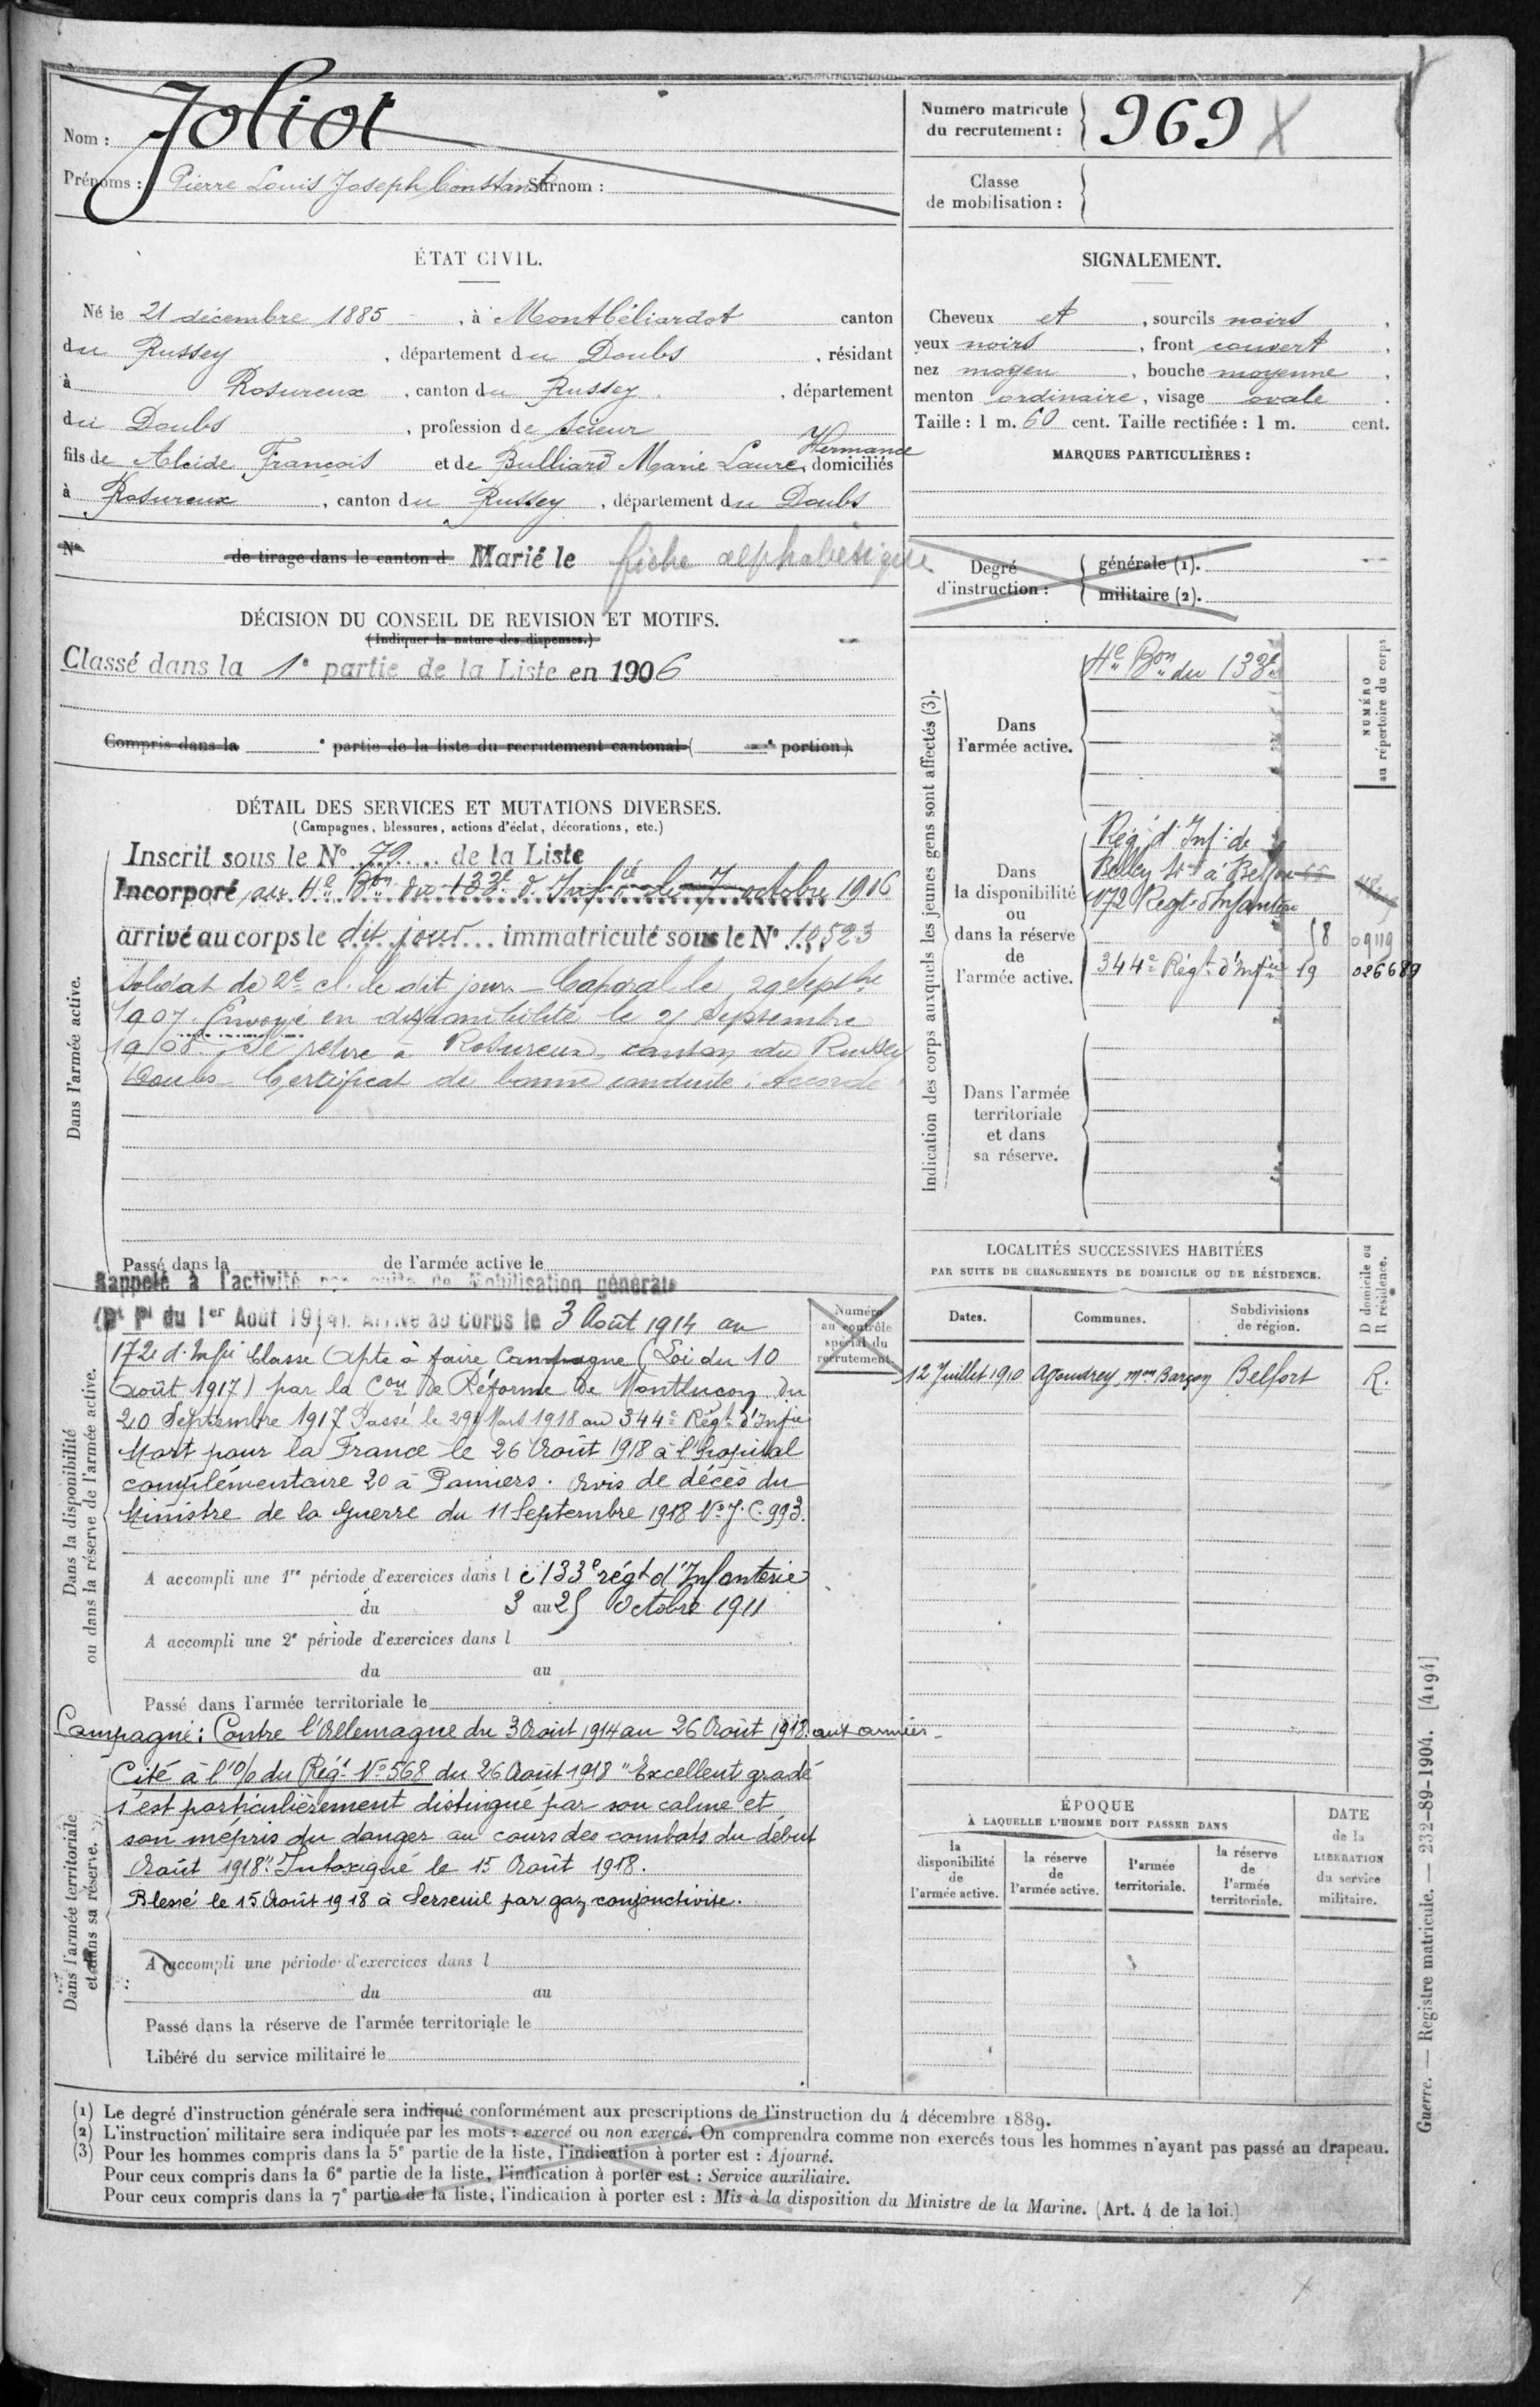 Nom : Joliot
Prénoms : Pierre Louis Joseph Constant Surnom :
Numéro matricule du recrutement : 969
Classe de mobilisation :
ÉTAT CIVIL.
Né le 21 décembre 1885, à Montbéliardot canton
du Russey, département du Doubs, résidant
à Rosureux, canton du Russey, département
du Doubs, profession de scieur
Hermance
fils de Alcide François et de Bulliard Marie Laure, domiciliés
à Rosureux, canton du Russey, département du Doubs
N° de tirage dans le canton d Marié le fiche alphabétique
SIGNALEMENT.
Cheveux et, sourcils noirs,
yeux noirs, front couvert,
nez moyen, bouche moyenne,
menton ordinaire, visage ovale.
Taille : 1 m. 60 cent. Taille rectifiée : 1 m. cent.
MARQUES PARTICULIÈRES :
Degré d'instruction : générale (1).
militaire (2).
DÉCISION DU CONSEIL DE REVISION ET MOTIFS.
(Indiquer la nature des dispenses.)
Classé dans la 1e partie de la Liste en 1906
Compris dans la e partie de la liste du recrutement cantonal ( e portion).
DÉTAIL DES SERVICES ET MUTATIONS DIVERSES.
(Campagnes, blessures, actions d'éclat, décorations, etc.)
Dans l'armée active.
Inscrit sous le N° 79 de la Liste
Incorporé au 4e Bon du 133e d'Infie le 7 octobre 1906
arrivé au corps le dit jour immatriculé sous le N° 10523
Soldat de 2e cl. le dit jour. Caporal le 29 Septbre
1907. Envoyé en disponibilité le 25 Septembre
1908. Se retire à Rosureux, canton du Russey
Doubs. Certificat de bonne conduite : Accordé
Passé dans la de l'armée active le
Rappelé à l'activité par suite de Mobilisation générale
(Dt Pl du 1er Août 1914). Arrivé au corps le 3 Août 1914 au
Dans la disponibilité ou dans la réserve de l'armée active.
172e d'Infie Classé Apte à faire Campagne (Loi du 10
août 1917) par la Con de Réforme de Montluçon du
20 Septembre 1917 Passé le 29 Mars 1918 au 344e Régt d'Infie
Mort pour la France le 26 Août 1918 à l'hopital
complémentaire 20 à Pamiers. Avis de décès du
Ministre de la Guerre du 11 Septembre 1918 No J.C. 993.
A accompli une 1re période d'exercices dans le 133e régt d'Infanterie
du 3 au 25 Octobre 1911
A accompli une 2e période d'exercices dans l
du au
Passé dans l'armée territoriale le
Campagne : Contre l'Allemagne du 3 Août 1914 au 26 Août 1918. aux armées.
Dans l'armée territoriale et dans sa réserve.
Cité à l'O/ du Régt No 568 du 26 Août 1918 "Excellent gradé
s'est particulièrement distingué par son calme et
son mépris du danger au cours des combats du début
Août 1918". Intoxiqué le 15 Août 1918.
Blessé le 15 Août 1918 à Serseuil par gaz conjonctivite.
A accompli une période d'exercices dans l
du au
Passé dans la réserve de l'armée territoriale le
Libéré du service militaire le
Numéro au contrôle spécial du recrutement.
Indication des corps auxquels les jeunes gens sont affectés (3).
NUMÉRO au répertoire du corps.
Dans l'armée active.
4e Bon du 133e
Dans la disponibilité ou dans la réserve de l'armée active.
Rég. d'Inf. de
Belley à Belfort
172 Régt d'Infanterie
58 09119
344e Régt d'Infie 19 026689
Dans l'armée territoriale et dans sa réserve.
LOCALITÉS SUCCESSIVES HABITÉES
PAR SUITE DE CHANGEMENTS DE DOMICILE OU DE RÉSIDENCE.
Dates. Communes. Subdivisions de région. D domicile ou R résidence.
12 Juillet 1910 Belfort R.
ÉPOQUE
À LAQUELLE L'HOMME DOIT PASSER DANS
la disponibilité de l'armée active.
la réserve de l'armée active.
l'armée territoriale.
la réserve de l'armée territoriale.
DATE de la LIBÉRATION du service militaire.
(1) Le degré d'instruction générale sera indiqué conformément aux prescriptions de l'instruction du 4 décembre 1889.
(2) L'instruction militaire sera indiquée par les mots : exercé ou non exercé. On comprendra comme non exercés tous les hommes n'ayant pas passé au drapeau.
(3) Pour les hommes compris dans la 5e partie de la liste, l'indication à porter est : Ajourné.
Pour ceux compris dans la 6e partie de la liste, l'indication à porter est : Service auxiliaire.
Pour ceux compris dans la 7e partie de la liste, l'indication à porter est : Mis à la disposition du Ministre de la Marine. (Art. 4 de la loi.)
Guerre. — Registre matricule. — 232-89-1904. [4194]